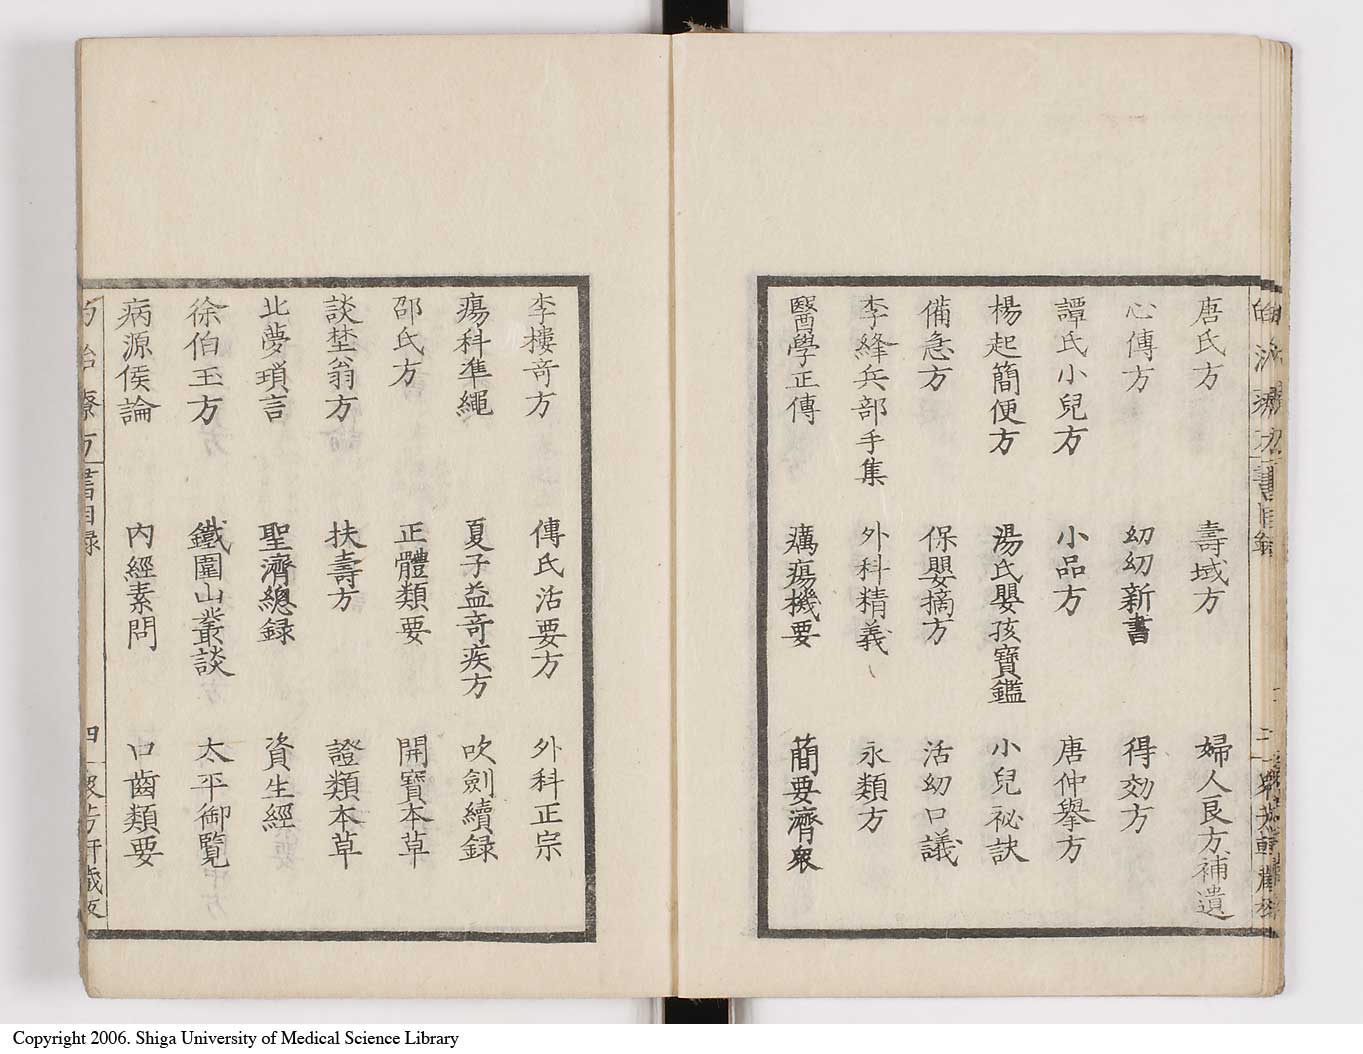 唐氏方 壽域方 婦人良方補遺
心傳方 幼幼新書 得効方
譚氏小兒方 小品方 唐仲舉方
楊起簡便方 湯氏嬰孩寶鑑 小兒祕訣
備急方 保嬰摘方 活幼口議
李絳兵部手集 外科精義 永類方
醫學正傳 癘瘍機要 簡要濟衆
李樓奇方 傳氏活要方 外科正宗
瘍科準繩 夏子益奇疾方 吹劍續録
邵氏方 正體類要 開寶本草
談埜翁方 扶壽方 證類本草
北夢瑣言 聖濟總録 資生經
徐伯玉方 鐵圍山叢談 太平御覧
病源侯論 內經素問 口齒類要
治療方 書目録 四
Copyright 2006. Shiga University of Medical Science Library